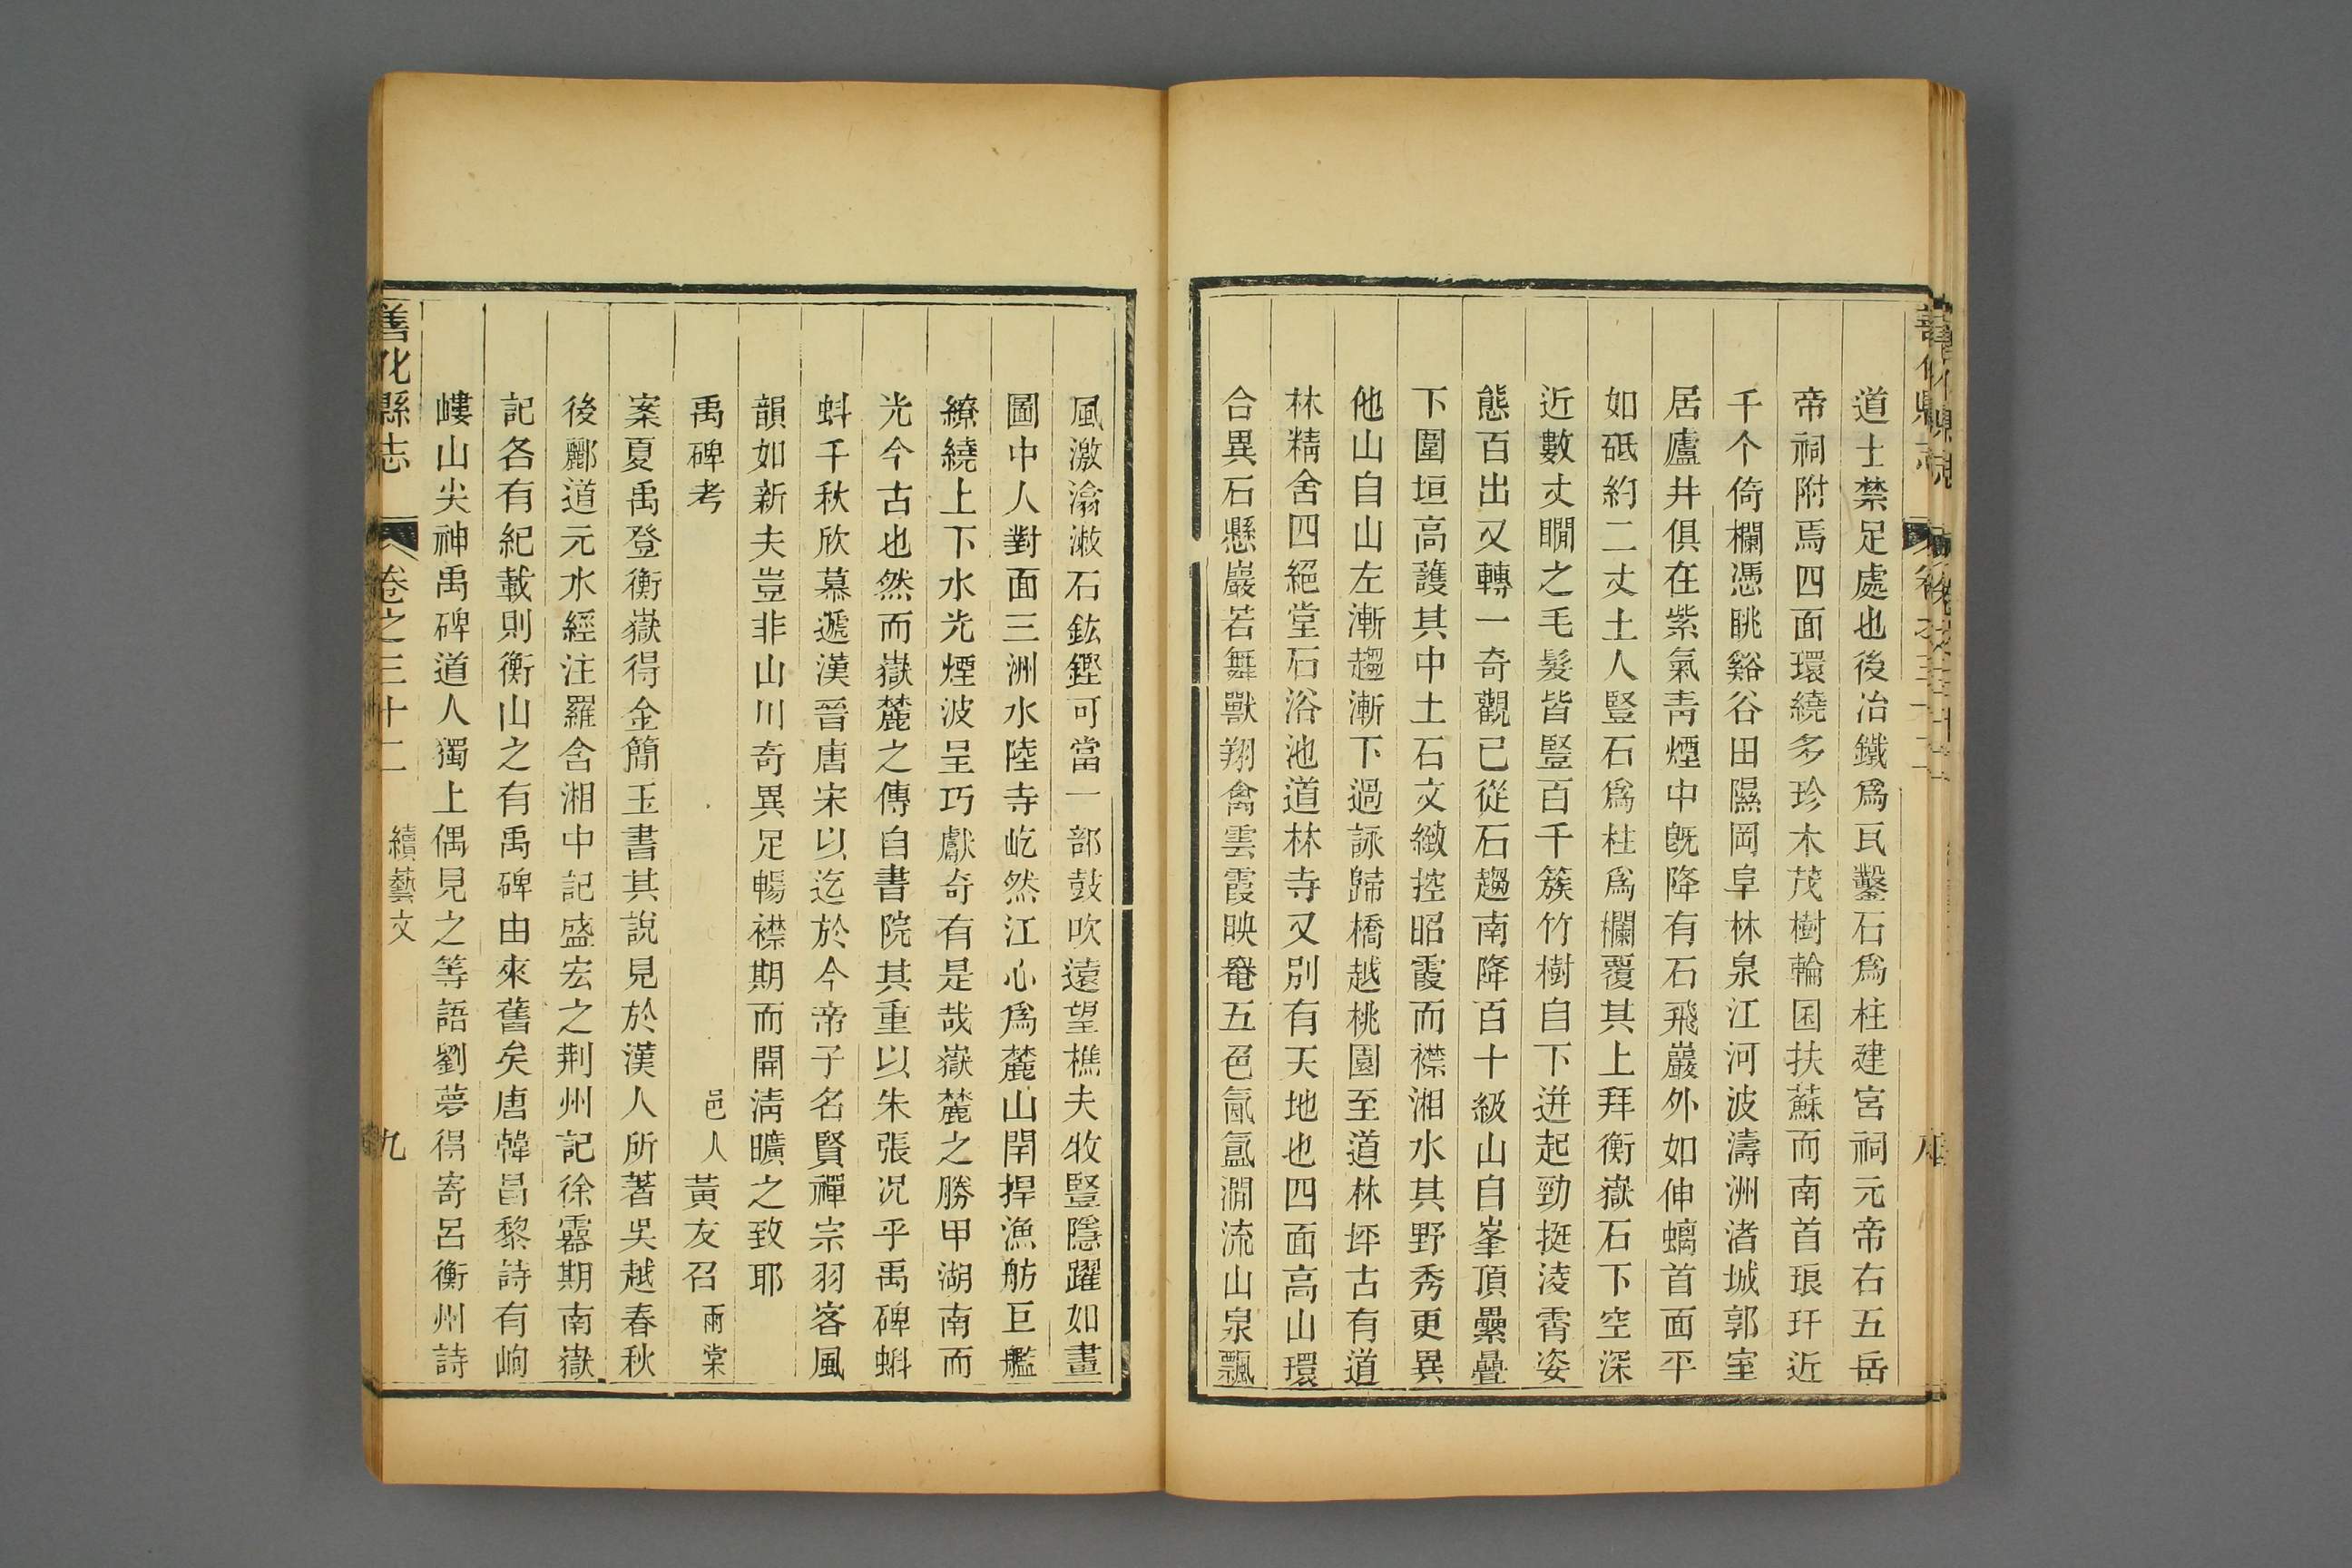 道士禁足處也後冶鐵爲瓦鑿石爲柱建宮祠元帝右五岳
帝祠附焉四面環繞多珍木茂樹輪囷扶蘇而南首琅玕近
千个倚欄憑眺谿谷田隰岡阜林泉江河波濤洲渚城郭室
居廬井俱在紫氣靑煙中旣降有石飛巖外如伸螭首面平
如砥約二丈土人豎石爲柱爲欄覆其上拜衡嶽石下空深
近數丈瞯之毛髮皆豎百千簇竹樹自下迸起勁挺淩霄姿
態百出又轉一奇觀已從石趨南降百十級山自峯頂纍疊
下圍垣高護其中土石文緻控昭霞而襟湘水其野秀更異
他山自山左漸趨漸下過詠歸橋越桃園至道林坪古有道
林精舍四絕堂石浴池道林寺又別有天地也四面高山環
合異石懸巖若舞獸翔禽雲霞映罨五色氤氳澗流山泉飄
風激瀹潄石鈜鏗可當一部鼓吹遠望樵夫牧豎隱躍如畫
圖中人對面三洲水陸寺屹然江心爲麓山閈捍漁舫巨艦
繚繞上下水光煙波呈巧獻奇有是哉嶽麓之勝甲湖南而
光今古也然而嶽麓之傳自書院其重以朱張況乎禹碑蝌
蚪千秋欣慕遞漢晉唐宋以迄於今帝子名賢禪宗羽客風
韻如新夫豈非山川奇異足暢襟期而開淸曠之致耶
禹碑考 邑人黃友召雨棠
案夏禹登衡嶽得金簡玉書其說見於漢人所著吳越春秋
後酈道元水經注羅含湘中記盛宏之荆州記徐靈期南嶽
記各有紀載則衡山之有禹碑由來舊矣唐韓昌黎詩有岣
嶁山尖神禹碑道人獨上偶見之等語劉夢得寄呂衡州詩
善化縣志 卷之三十二 續藝文 九